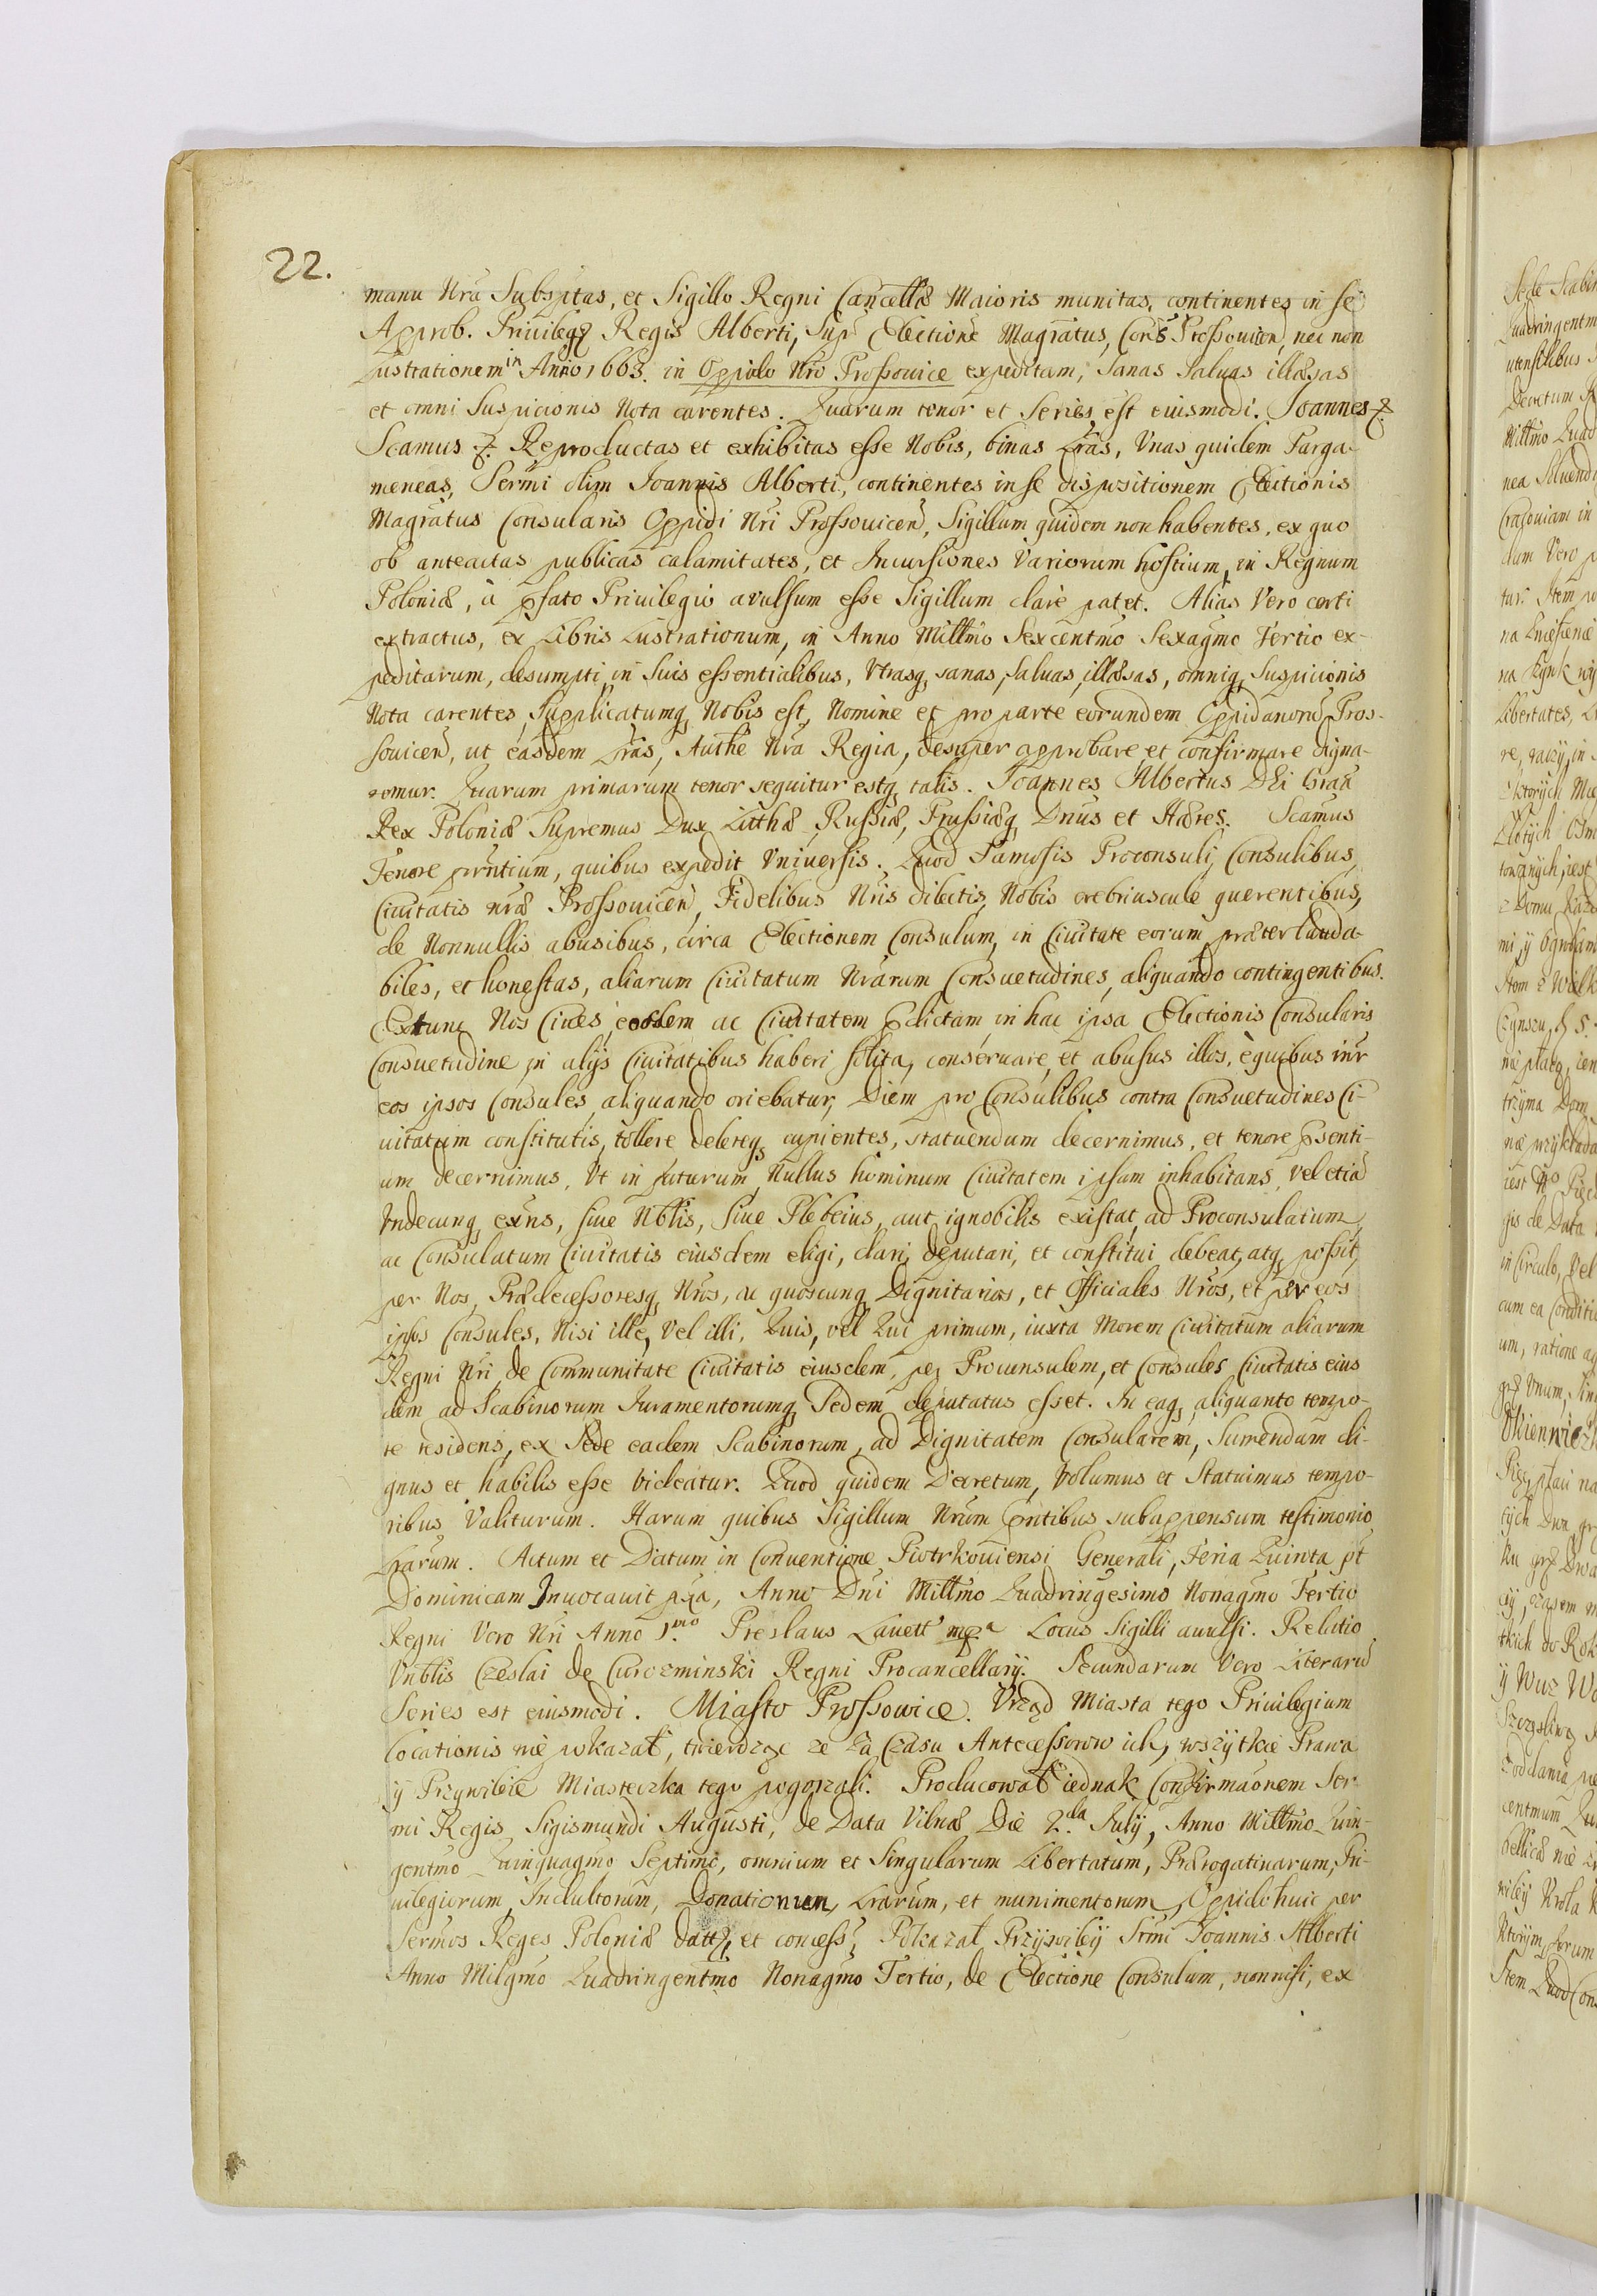 22.
manu Nra Subsptas, et Sigillo Regni Cancellæ Maioris munitas, continentes in se
Approb. Priuileg Regis Alberti, Sup Electione Magratus, Cons Prossouicen, nec non
Lustrationem in Anno 1663. in Oppido Nro Prossouice expeditam, Sanas Saluas illæsas
et omni Suspicionis Nota carentes. Quarum tenor et Series est eiusmodi. Joannes &.
Scamus &. Reproductas et exhibitas esse Nobis, binas Lras, Vnas quidem Parga-
meneas, Sermi olim Joannis Alberti, continentes in se dispositionem Electionis
Magratus Consularis Oppidi Nri Prossouicen, Sigillum quidem non habentes, ex quo
ob anteactas publicas calamitates, et Incursiones Variorum hostium, in Regnum
Poloniæ, à psato Priuilegio avulsum esse Sigillum clarè patet. Alias Vero certi
extractus, ex Libris Lustrationum, in Anno Millmo Sexcentmo Sexagmo Tertio ex-
peditarum, desumpti, in Suis essentialibus, Vtrasq, sanas, saluas, illæsas, omniq, Suspicionis
Nota carentes, Supplicatumq, Nobis est, Nomine et pro parte eorundem Oppidanoru Pros-
souicen, ut easdem Lras, Authe Nra Regia, desuper approbare et confirmare digna-
remur. Quarum primarum tenor sequitur estq, talis. Joannes Albertus Dei Graa
Rex Poloniæ Supremus Dux Litthæ, Russiæ, Prussiæq, Dnus et Hæres. Scamus
Tenore pnntium, quibus expedit Vniuersis. Quod Famosis Proconsuli, Consulibus,
Ciuitatis nræ Prossouicen, Fidelibus Nris dilectis, Nobis crebriuscule querentibus,
de Nonnullis abusibus, circa Electionem Consulum, in Ciuitate eorum, præter lauda-
biles, et honestas, aliarum Ciuitatum Nrarum Consuetudines, aliquando contingentibus.
Extunc Nos Ciues eosdem ac Ciuitatem pdictam, in hac ipsa Electionis Consularis
Consuetudine, in alijs Ciuitatibus haberi solita, conseruare, et abusus illos, è quibus intr
eos ipsos Consules, aliquando oriebatur, Diem pro Consulibus contra Consuetudines Ci-
uitatum constitutis, tollere delereq, cupientes, statuendum decernimus, et tenore psenti-
um decernimus, Vt in futurum, Nullus hominum Ciuitatem ipsam inhabitans, vel etia
Vndecunq, exns, siue Nblis, siue Plebeius, aut ignobilis existat, ad Proconsulatum,
ac Consulatum Ciuitatis eiusdem eligi, dari, deputari, et constitui debeat, atq, possit,
per Nos, Prædecessoresq, Nros, ac quoscunq, Dignitarios, et Officiales Nros, et per eos
ipsos Consules, Nisi ille, Vel illi, Quis, vel Qui primum, iuxta Morem Ciuitatum aliarum
Regni Nri, de Communitate Ciuitatis eiusdem, per Proconsulem, et Consules Ciuitatis eius
dem ad Scabinorum Iuramentorumq, Sedem deputatus esset. In eaq, aliquanto tempo-
re residens, ex Sede eadem Scabinorum, ad Dignitatem Consularem, Sumendam di-
gnus et habilis esse videatur. Quod quidem Decretum, Volumus et Statuimus tempo-
ribus Valiturum. Harum quibus Sigillum Nrum pntibus subappensum testimonio
Lrarum. Actum et Datum in Conuentione Piotrkouiensi Generali, Feria Quinta pt
Dominicam Jnuocauit pxa, Anno Dni Millmo Quadringesimo Nonagmo Tertio
Regni Vero Nri Anno 1mo. Preslaus Lauett mpa Locus Sigilli auulsi. Relatio
Vnblis Czeslai de Curozminski Regni Procancellarij. Secundarum Vero Literaru
Series est eiusmodi. Miasto Prossowice. Vrząd Miasta tego Priuilegium
Locationis nie pokazał, twierdząc ze Za Czasu Antecessorow ich, wszytkie Prawa
ÿ Przywileie Miasteczka tego pogorzali. Producował iednak Confirmaonem Ser-
mi Regis Sigismundi Augusti, de Data Vilnæ Die 2da July, Anno Millmo Quin-
gentmo Quinquagmo Septimo, omnium et Singularum Libertatum, Prærogatiuarum, Pri-
uilegiorum, Indultorum, Donationum, Lrarum, et munimentorum, Oppido huic per
Sermos Reges Poloniæ datt, et concess, Pokazał Przywiley Srmi Joannis Alberti
Anno Milgmo Quadringentmo Nonagmo Tertio, de Electione Consulum, nonnisi, ex